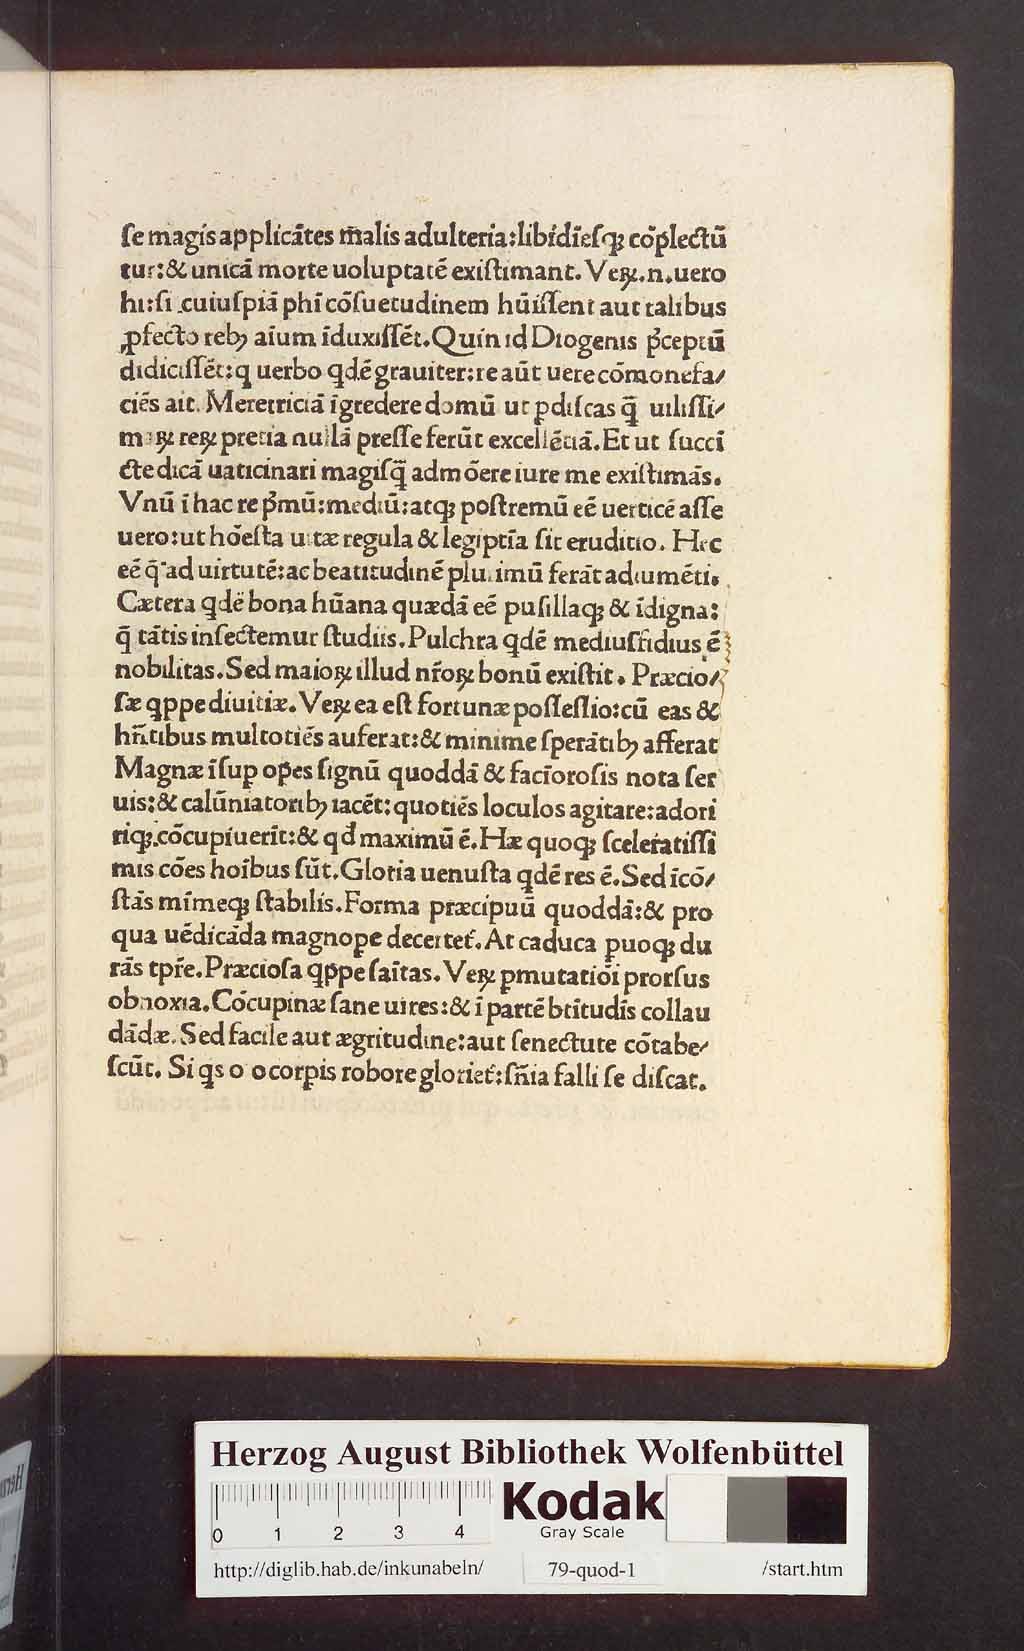 ſe magis applicātes m̄alis adulteria:libidīeſqꝫ cōplectū
tur:& unicā morte uoluptatē exiſtimant. Veꝝ.n.uero
hi:ſi cuiuſpiā phī cōſuetudinem hūiſſent aut talibus
ꝓfecto rebꝫ aīum īduxiſſēt.Quin id Diogenis p̄ceptū
didiciſſēt:q uerbo qdē grauiter:re aūt uere cōmonefa/
ciēs ait. Meretriciā īgredere domū ut ꝑdiſcas q̄ uiliſſi/
maꝝ reꝝ precia nullā preſſe ferūt excellētiā.Et ut ſucci
cte dicā uaticinari magiſq̄ admōere iure me exiſtimās.
Vnū ī hac re p̄mū:mediū:atqꝫ poſtremū eē uerticē aſſe
uero:ut hōeſta uitæ regula & legiptīa ſit eruditio. Hec
eē q̄ ad uirtutē:ac beatitudinē plurimū ferāt adiumēti.
Cætera qdē bona hūana quædā eē puſillaqꝫ & īdigna:
q̄ tātis inſectemur ſtudiis.Pulchra qdē mediuſfidius ē
nobilitas.Sed maioꝝ illud nr̄oꝝ bonū exiſtit. Præcio/
ſæ qppe diuitiæ.Veꝝ ea eſt fortunæ poſſeſſio:cū eas &
hn̄tibus multotiēs auferat:& minime ſperātibꝫ afferat
Magnæ īſup opes ſignū quoddā & facīoroſis nota ſer
uis:& calūniatoribꝫ iacēt:quotiēs loculos agitare:adori
riqꝫ cōcupiuerīt:& qd maximū ē.Hæ quoqꝫ ſceleratiſſi
mis cōes hoībus ſūt.Gloria uenuſta qdē res ē.Sed īcō/
ſtās mīmeqꝫ ſtabilis.Forma præcipuū quoddā:& pro
qua uēdicāda magnope decertet̄.At caduca ꝑuoqꝫ du
rās tpr̄e.Præcioſa qppe ſaītas.Veꝝ ꝑmutatiōi prorſus
obnoxia.Cōcupinæ ſane uires:& ī partē btītudīs collau
dādæ.Sed facile aut ægritudine:aut ſenectute cōtabe/
ſcūt. Si qs o o corpis robore gloriet̄:ſn̄ia falli ſe diſcat.
Herzog August Bibliothek Wolfenbüttel
0 1 2 3 4
Kodak
Gray Scale
http://diglib.hab.de/inkunabeln/ 79-quod-1 /start.htm